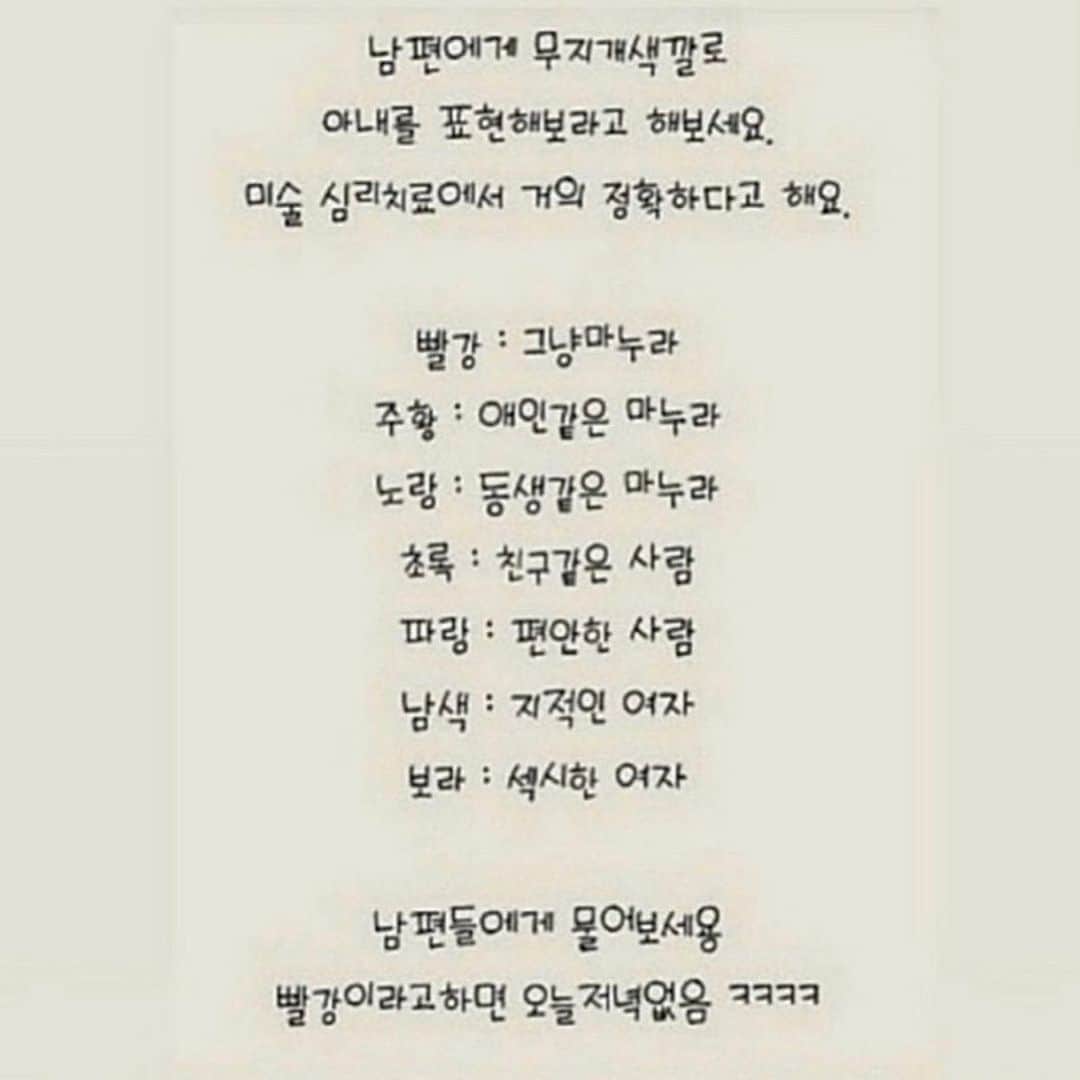 남편에게 무지개색깔로
아내를 표현해보라고 해보세요.
미술 심리치료에서 거의 정확하다고 해요.
빨강 : 그냥마누라
주황 : 애인같은 마누라
노랑 : 동생같은 마누라
초록 : 친구같은 사람
파랑 : 편안한 사람
남색 : 지적인 여자
보라 : 섹시한 여자
남편들에게 물어보세용
빨강이라고하면 오늘저녁없음 ㅋㅋㅋㅋ